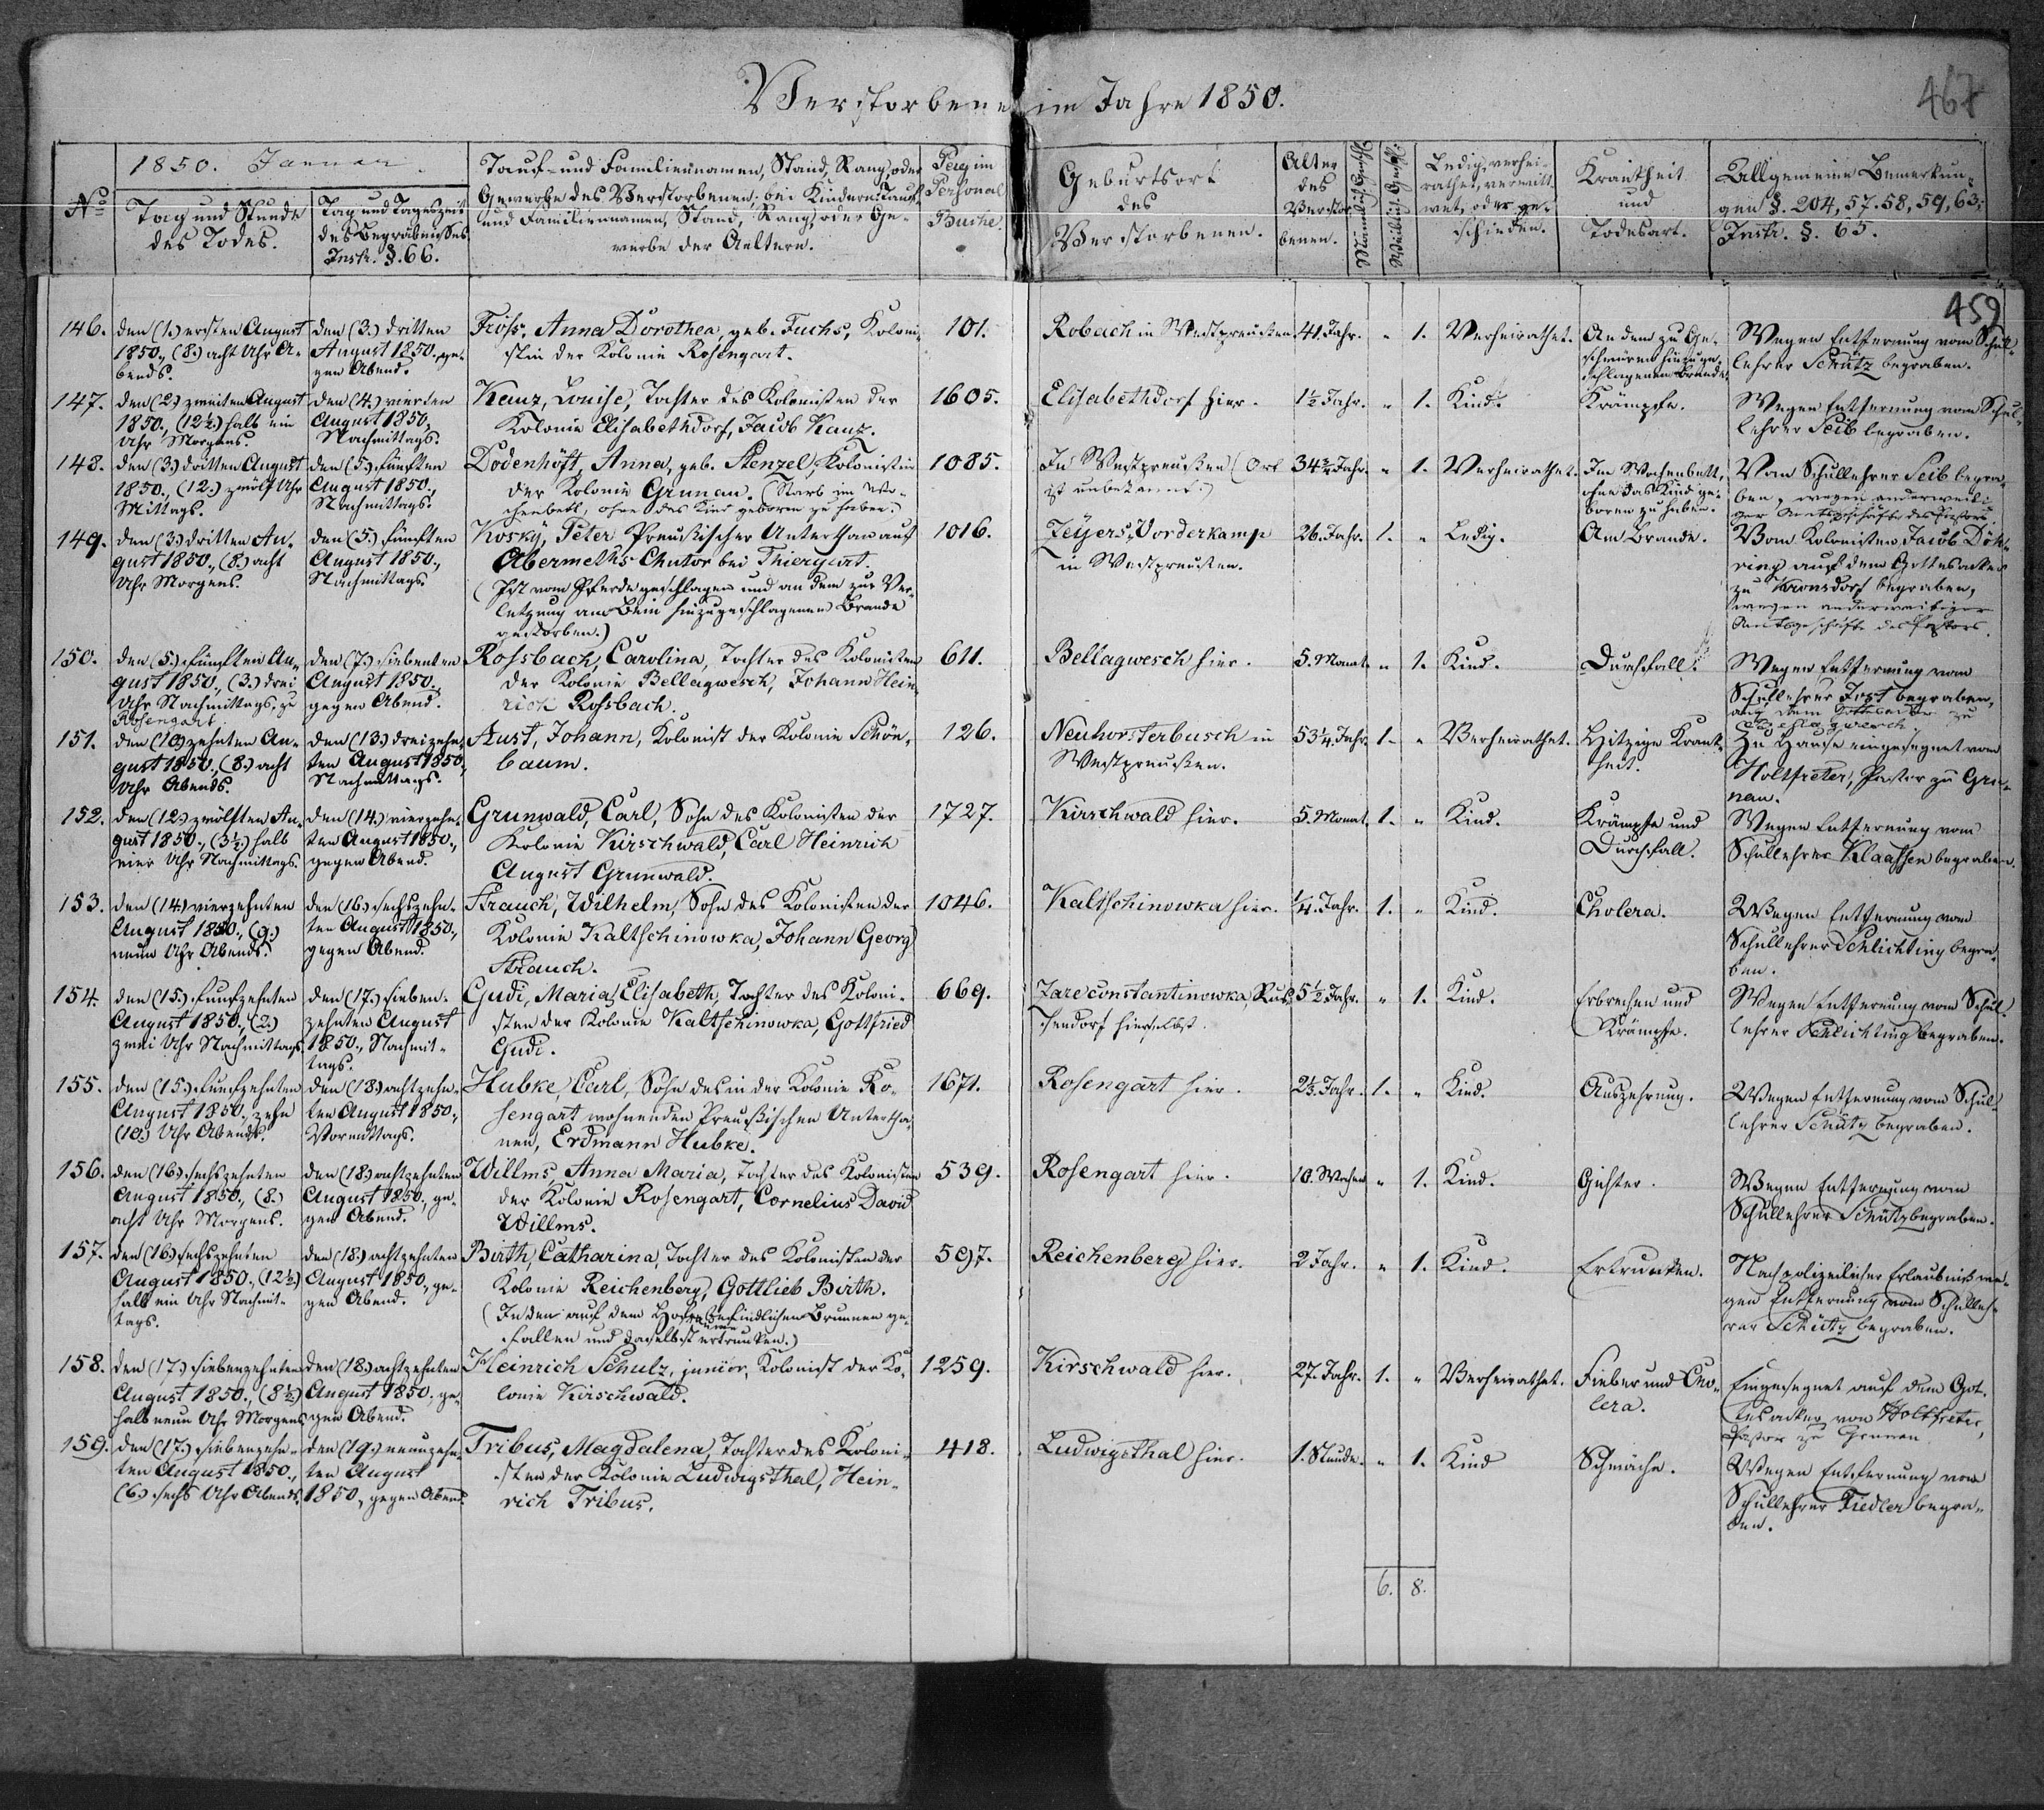 Verstorbene im Jahre 1850.
467
459
1850. Januar
No
Tag und Stunde
des Todes.
Tag und Tageszeit
des Begräbnisses
Instr. §. 66.
Tauf- und Familiennamen, Stand, Rang, oder
Gewerbe des Verstorbenen; bei Kindern: Tauf-
und Familiennamen, Stand, Rang, oder Ge-
werbe der Aeltern.
Pag im
Personal
Buche.
Geburtsort
des
Verstorbenen.
Alter
des
Verstor-
benen.
Männlich. Geschl.
Weiblich. Geschl.
Ledig, verhei-
rathet, verwitt-
wet, oder ge-
schieden.
Krankheit
und
Todesart.
Allgemeine Bemerkun-
gen §. 204, 57. 58, 59, 63;
Instr. §. 65.
146.
den (1.) ersten August
1850., (8.) acht Uhr A-
bends.
den (3.) dritten
August 1850., ge-
gen Abend.
Fröss, Anna Dorothea, geb. Fuchs, Koloni-
stin der Kolonie Rosengart.
101.
Robach in Westpreussen
41. Jahr.
" 1.
Verheirathet.
An dem zu Ge-
schwüren hinzuge-
schlagenen Brande.
Wegen Entfernung vom Schul-
lehrer Schütz begraben.
147.
den (2.) zweiten August
1850., (12½.) halb ein
Uhr Morgens.
den (4.) vierten
August 1850.,
Nachmittags.
Kanz, Louise, Tochter des Kolonisten der
Kolonie Elisabethdorf, Jacob Kanz.
1605.
Elisabethdorf hier.
1½ Jahr.
" 1.
Kind.
Krämpfe.
Wegen Entfernung vom Schul-
lehrer Seib begraben.
148.
den (3.) dritten August
1850., (12.) zwölf Uhr
Mittags.
den (5.) fünften
August 1850.,
Nachmittags.
Dodenhöft, Anna, geb. Stenzel, Kolonistin
der Kolonie Grunau. (Starb im Wo-
chenbett, ohne das Kind geboren zu haben.)
1085.
In Westpreußen (Ort
ist unbekannt.)
34¾ Jahr.
" 1.
Verheirathet.
Im Wochenbett,
ohne das Kind ge-
boren zu haben.
Vom Schullehrer Seib begra-
ben, wegen anderweiti-
ger Amtsgeschäfte des Pastors.
149.
den (3.) dritten Au-
gust 1850., (8.) acht
Uhr Morgens.
den (5.) fünften
August 1850.,
Nachmittags.
Kosky, Peter, Preußischer Unterthan auf
Abermeths-Chutor bei Thiergart.
(Ist vom Pferde geschlagen und an dem zur Ver-
letzung am Bein hinzugeschlagenen Brande
gestorben.)
1016.
Zeyers-Vorderkamp
in Westpreußen.
26. Jahr.
1. "
Ledig.
Am Brande.
Vom Kolonisten Jacob Döh-
ring auf dem Gottesacker
zu Kronsdorf begraben,
wegen anderweitiger
Amtsgeschäfte des Pastors.
150.
den (5.) fünften Au-
gust 1850., (3.) drei
Uhr Nachmittags, zu
Rosengart.
den (7.) siebenten
August 1850.,
gegen Abend.
Rossbach, Carolina, Tochter des Kolonisten
der Kolonie Bellagwesch, Johann Hein-
rich Rossbach.
611.
Bellagwesch hier.
5. Monat
" 1.
Kind.
Durchfall.
Wegen Entfernung vom
Schullehrer Jost begraben,
auf dem Gottesacker zu
Bellagwesch.
151.
den (10.) zehnten Au-
gust 1850., (8.) acht
Uhr Abends.
den (13.) dreizehn-
ten August 1850.,
Nachmittags.
Aust, Johann, Kolonist der Kolonie Schön-
baum.
126.
Neuhorsterbusch in
Westpreussen.
53¼. Jahr.
1. "
Verheirathet.
Hitzige Krank-
heit.
Zu Hause eingesegnet vom
Holtfreter, Pastor zu Gru-
nau.
152.
den (12.) zwölften Au-
gust 1850., (3½.) halb
vier Uhr Nachmittags.
den (14.) vierzehn-
ten August 1850.,
gegen Abend.
Grunwald, Carl, Sohn des Kolonisten der
Kolonie Kirschwald, Carl Heinrich
August Grunwald.
1727.
Kirschwald hier.
5. Monat.
1. "
Kind.
Krämpfe und
Durchfall.
Wegen Entfernung vom
Schullehrer Klaassen begraben.
153.
den (14.) vierzehnten
August 1850., (9.)
neun Uhr Abends.
den (16.) sechszehn-
ten August 1850.,
gegen Abend.
Strauch, Wilhelm, Sohn des Kolonisten der
Kolonie Kaltschinowka, Johann Georg
Strauch.
1046.
Kaltschinowka hier.
¼. Jahr.
1. "
Kind.
Cholera.
Wegen Entfernung vom
Schullehrer Schlichting begra-
ben.
154.
den (15.) funfzehnten
August 1850., (2.)
zwei Uhr Nachmittags.
den (17.) sieben-
zehnten August
1850., Nachmit-
tags.
Gudi, Maria Elisabeth, Tochter des Koloni-
sten der Kolonie Kaltschinowka, Gottfried
Gudi.
669.
Zareconstantinowka, Rus-
sendorf hierselbst.
5½ Jahr.
" 1.
Kind.
Erbrechen und
Krämpfe.
Wegen Entfernung vom Schul-
lehrer Schlichting begraben.
155.
den (15.) funfzehnten
August 1850., zehn
(10.) Uhr Abends.
den (18.) achtzehn-
ten August 1850.,
Vormittags.
Hubke, Carl, Sohn des in der Kolonie Ro-
sengart wohnenden Preußischen Untertha-
nen, Erdmann Hubke.
1671.
Rosengart hier.
2⅓. Jahr.
1. "
Kind.
Auszehrung.
Wegen Entfernung vom Schul-
lehrer Schütz begraben.
156.
den (16.) sechszehnten
August 1850., (8.)
acht Uhr Morgens.
den (18.) achtzehnten
August 1850., ge-
gen Abend.
Willms, Anna Maria, Tochter des Kolonisten
der Kolonie Rosengart, Cornelius David
Willms.
539.
Rosengart hier.
10. Wochen
" 1.
Kind.
Gichter.
Wegen Entfernung vom
Schullehrer Schütz begraben.
157.
den (16.) sechszehnten
August 1850., (12½.)
halb ein Uhr Nachmit-
tags.
den (18.) achtzehnten
August 1850., ge-
gen Abend.
Birth, Catharina, Tochter des Kolonisten der
Kolonie Reichenberg, Gottlieb Birth.
(In den auf dem Hofraume befindlichen Brunnen ge-
fallen und daselbst ertrunken.)
597.
Reichenberg hier.
2 Jahr.
" 1.
Kind.
Ertrunken.
Nach polizeilicher Erlaubniß we-
gen Entfernung vom Schulleh-
rer Schütz begraben.
158.
den (17.) siebenzehnten
August 1850., (8½.)
halb neun Uhr Morgens
den (18.) achtzehnten
August 1850., ge-
gen Abend.
Heinrich Schulz, junior, Kolonist der Ko-
lonie Kirschwald.
1259.
Kirschwald hier.
27. Jahr.
1. "
Verheirathet.
Fieber und Cho-
lera.
Eingesegnet auf dem Got-
tesacker von Holtfreter,
Pastor zu Grunau
159.
den (17.) siebenzehn-
ten August 1850.,
(6.) sechs Uhr Abends.
den (19.) neunzehn-
ten August
1850., gegen Abend.
Tribus, Magdalena, Tochter des Koloni-
sten der Kolonie Ludwigsthal, Hein-
rich Tribus.
418.
Ludwigsthal hier.
1. Stunde.
" 1.
Kind
Schwäche.
Wegen Entfernung vom
Schullehrer Fiedler begra-
ben.
6. 8.